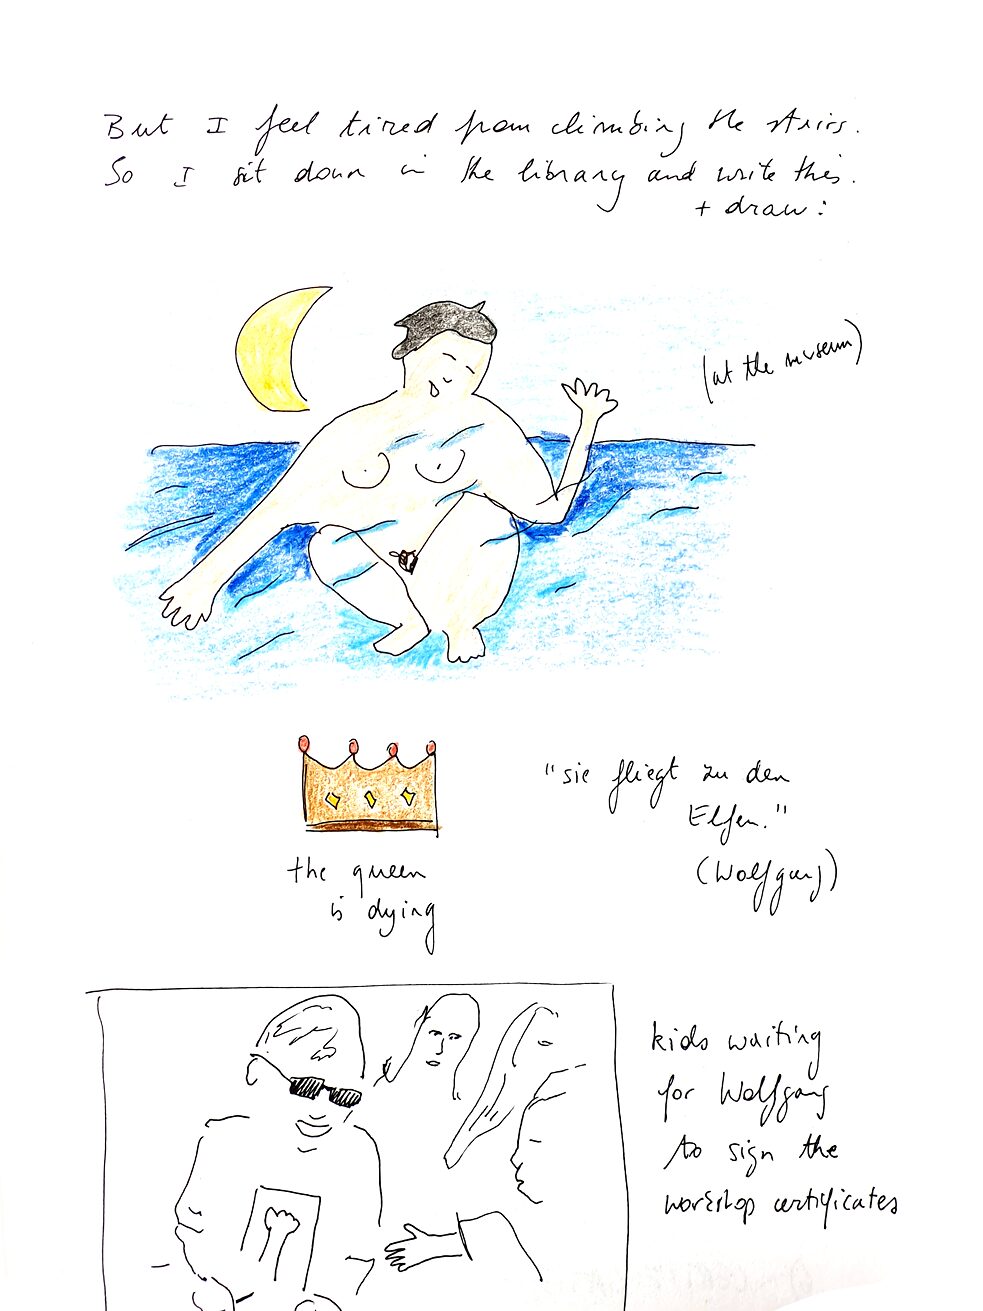 But I feel tired from climbing the stairs.
So I sit down in the library and write this.
+ draw:
(at the museum)
"sie fliegt zu den
Elfen."
(Wolfgang)
the queen
is dying
kids waiting
for Wolfgang
to sign the
workshop certificates